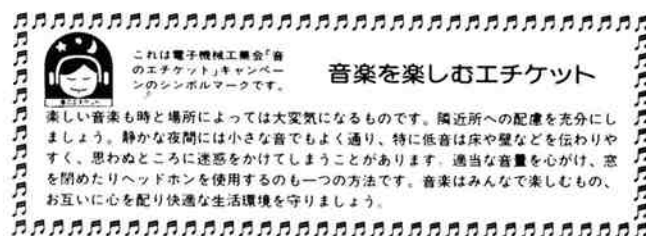 これは電子機械工業会「音
のエチケット」キャンペー
ンのシンボルマークです。
音楽を楽しむエチケット
音のエチケット
楽しい音楽も時と場所によっては大変気になるものです。隣近所への配慮を充分にし
ましょう。静かな夜間には小さな音でもよく通り、特に低音は床や壁などを伝わりや
すく、思わぬところに迷惑をかけてしまうことがあります。適当な音量を心がけ、窓
を閉めたりヘッドホンを使用するのも一つの方法です。音楽はみんなで楽しむもの、
お互いに心を配り快適な生活環境を守りましょう。